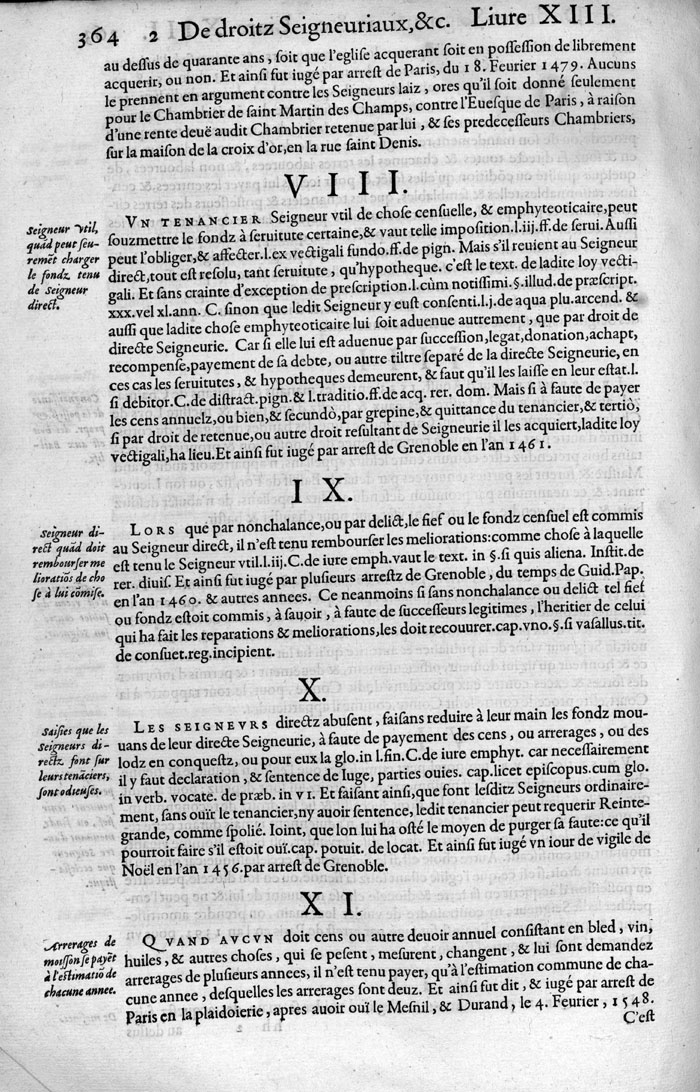 364 2 De droitz Seigneuriaux,&c. Liure XIII.
au dessus de quarante ans, soit que l'eglise acquerant soit en possession de librement
acquerir, ou non. Et ainsi fut iugé par arrest de Paris, du 18. Feurier 1479. Aucuns
le prennent en argument contre les Seigneurs laiz, ores qu'il soit donné seulement
pour le Chambrier de saint Martin des Champs, contre l'Euesque de Paris, à raison
d'une rente deuë audit Chambrier retenue par lui, & ses predecesseurs Chambriers,
sur la maison de la croix d'or, en la rue saint Denis.
VIII.
Seigneur vtil,
quãd peut seu-
remẽt charger
le fondz tenu
de Seigneur
direct.
VN TENANCIER Seigneur vtil de chose censuelle, & emphyteoticaire, peut
souzmettre le fondz à seruitute certaine, & vaut telle imposition.l.iij.ff.de serui. Aussi
peut l'obliger, & affecter.l.ex vectigali fundo.ff.de pign. Mais s'il reuient au Seigneur
direct, tout est resolu, tant seruitute, qu'hypotheque. c'est le text. de ladite loy vecti-
gali. Et sans crainte d'exception de prescription.l.cùm notissimi.§.illud.de præscript.
xxx.vel xl.ann. C. sinon que ledit Seigneur y eust consenti.l.j.de aqua plu.arcend. &
aussi que ladite chose emphyteoticaire lui soit aduenue autrement, que par droit de
directe Seigneurie. Car si elle lui est aduenue par succession, legat, donation, achapt,
recompense, payement de sa debte, ou autre tiltre separé de la directe Seigneurie, en
ces cas les seruitutes, & hypotheques demeurent, & faut qu'il les laisse en leur estat.l.
si debitor.C.de distract.pign.& l.traditio.ff.de acq. rer. dom. Mais si à faute de payer
les cens annuelz, ou bien, & secundò, par grepine, & quittance du tenancier, & tertiò,
si par droit de retenue, ou autre droit resultant de Seigneurie il les acquiert, ladite loy
vectigali, ha lieu. Et ainsi fut iugé par arrest de Grenoble en l'an 1461.
IX.
Seigneur di-
rect quãd doit
rembourser me
lioratiõs de cho
se à lui cõmise.
LORS que par nonchalance, ou par delict, le fief ou le fondz censuel est commis
au Seigneur direct, il n'est tenu rembourser les meliorations: comme chose à laquelle
est tenu le Seigneur vtil.l.iij.C.de iure emph.vaut le text. in §.si quis aliena. Instit.de
rer. diuis. Et ainsi fut iugé par plusieurs arrestz de Grenoble, du temps de Guid.Pap.
en l'an 1460. & autres annees. Ce neanmoins si sans nonchalance ou delict tel fief
ou fondz estoit commis, à sauoir, à faute de successeurs legitimes, l'heritier de celui
qui ha fait les reparations & meliorations, les doit recouurer.cap.vno.§.si vasallus.tit.
de consuet.reg.incipient.
X.
Saisies que les
Seigneurs di-
rectz font sur
leurs tenãciers,
sont odieuses.
LES SEIGNEVRS directz abusent, faisans reduire à leur main les fondz mou-
uans de leur directe Seigneurie, à faute de payement des cens, ou arrerages, ou des
lodz en conquestz, ou pour eux la glo.in l.fin.C.de iure emphyt. car necessairement
il y faut declaration, & sentence de Iuge, parties ouies. cap.licet episcopus.cum glo.
in verb. vocate. de præb. in vi. Et faisant ainsi, que font lesditz Seigneurs ordinaire-
ment, sans ouïr le tenancier, ny auoir sentence, ledit tenancier peut requerir Reinte-
grande, comme spolié. Ioint, que lon lui ha osté le moyen de purger sa faute: ce qu'il
pourroit faire s'il estoit ouï.cap. potuit. de locat. Et ainsi fut iugé vn iour de vigile de
Noël en l'an 1456. par arrest de Grenoble.
XI.
Arrerages de
moisson se payẽt
à l'estimatiõ de
chacune annee.
QVAND AVCVN doit cens ou autre deuoir annuel consistant en bled, vin,
huiles, & autres choses, qui se pesent, mesurent, changent, & lui sont demandez
arrerages de plusieurs annees, il n'est tenu payer, qu'à l'estimation commune de cha-
cune annee, desquelles les arrerages sont deuz. Et ainsi fut dit, & iugé par arrest de
Paris en la plaidoierie, apres auoir ouï le Mesnil, & Durand, le 4. Feurier, 1548.
C'est